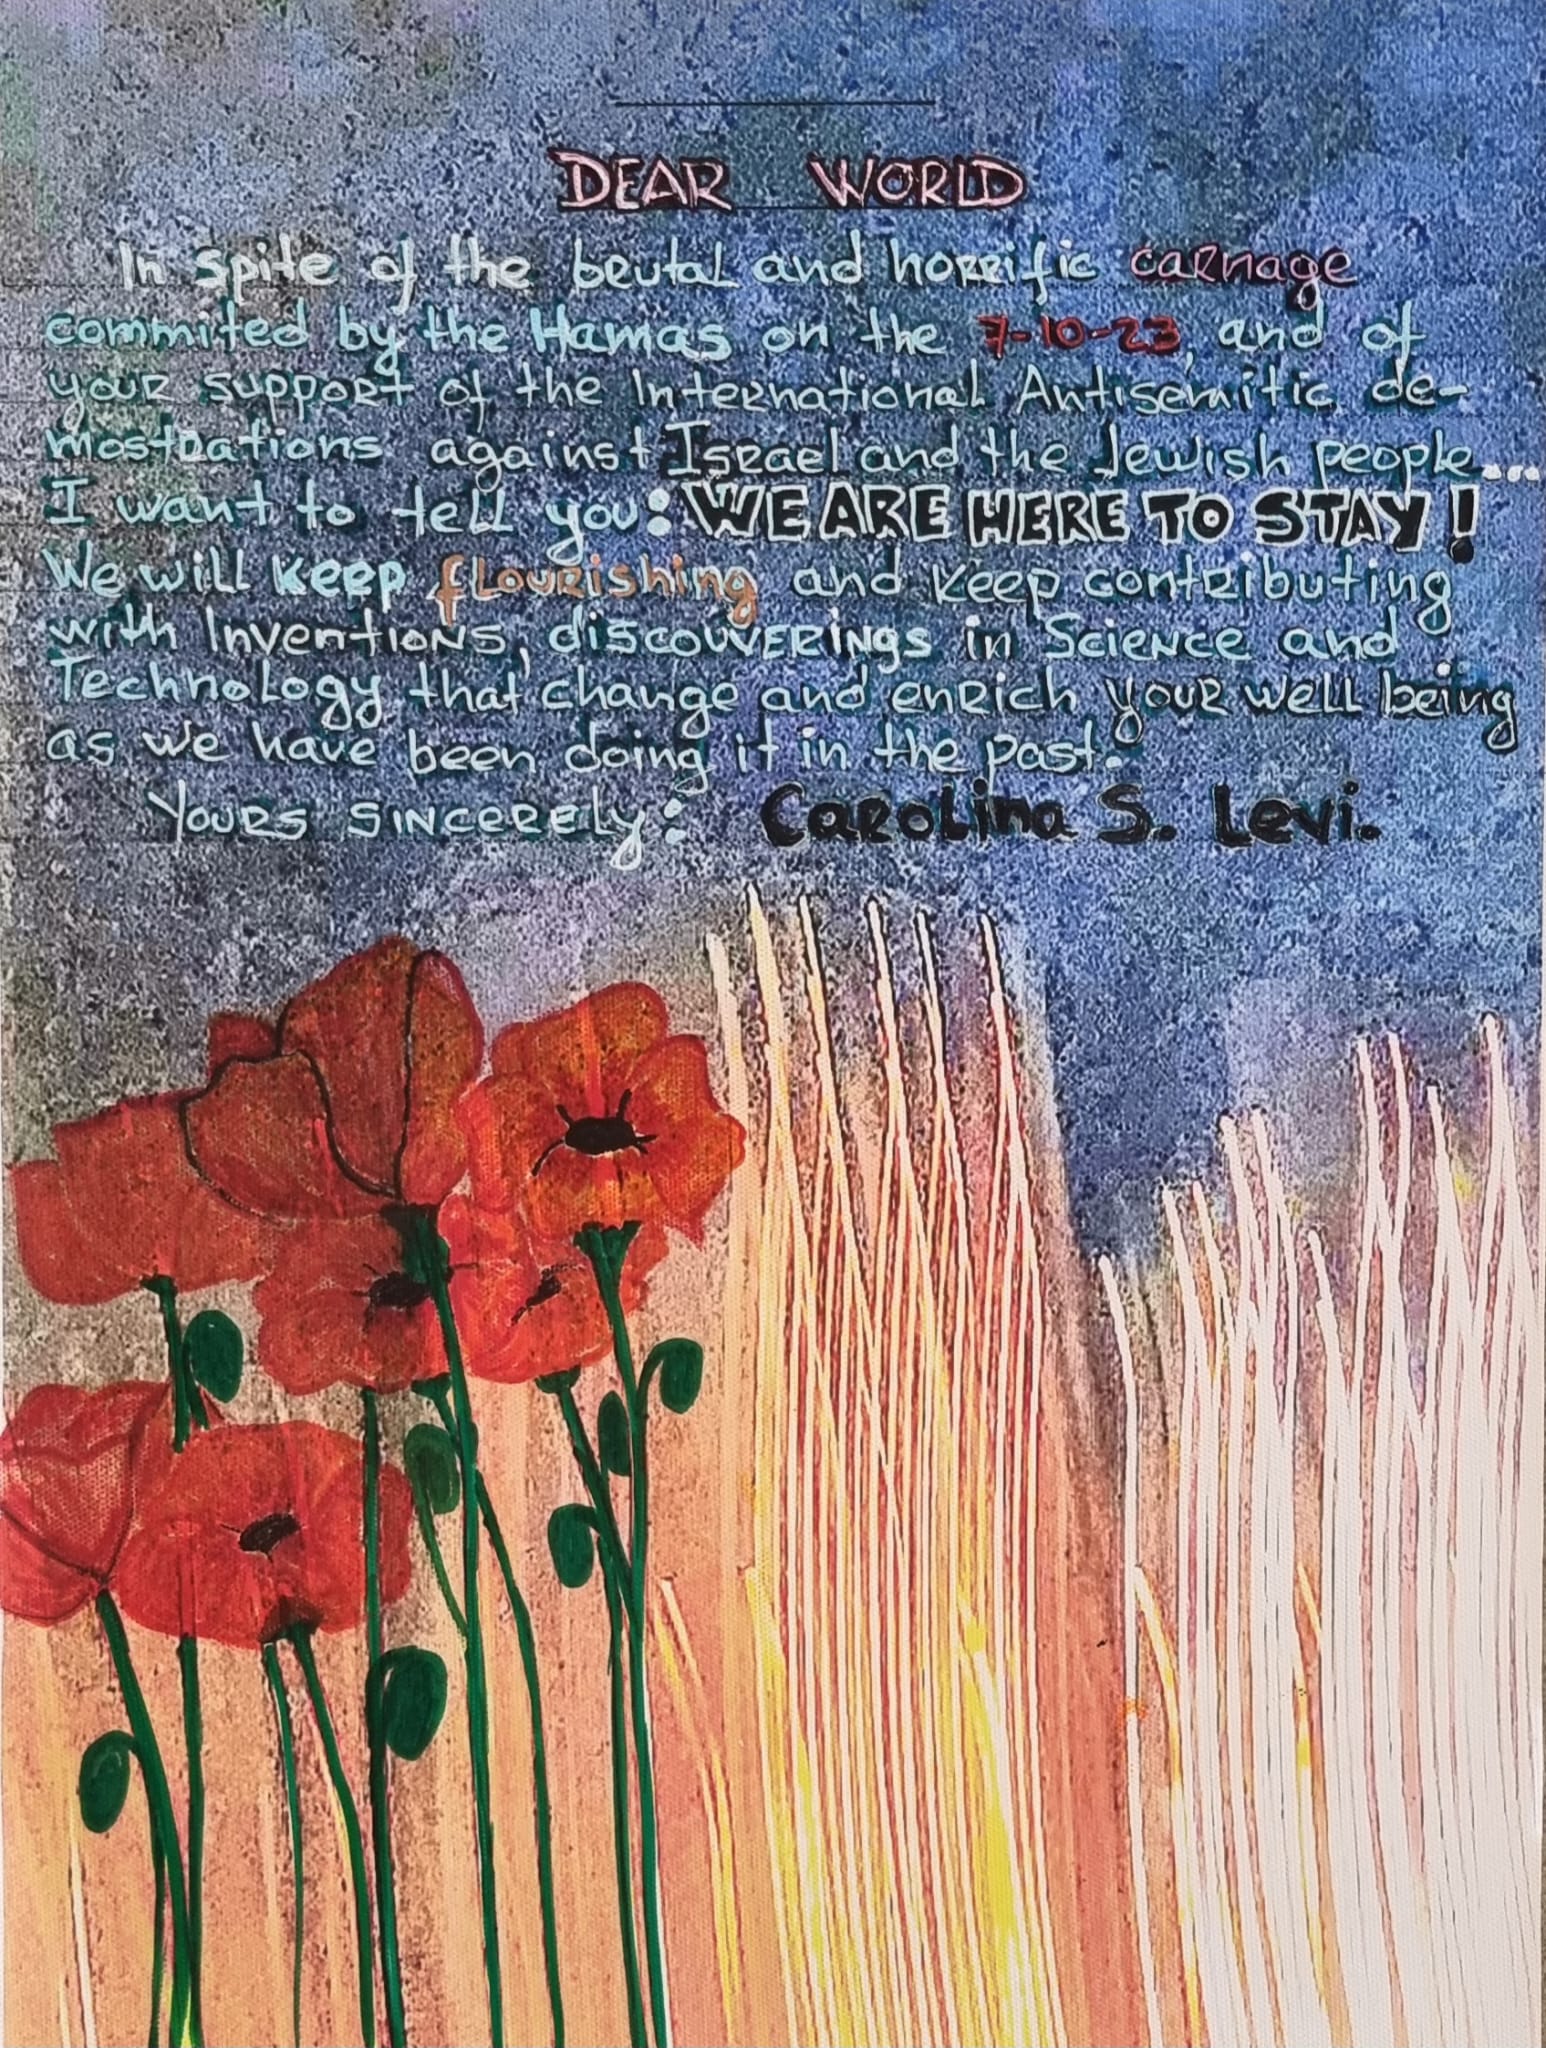 DEAR WORLD
In spite of the brutal and horrific carnage
commited by the Hamas on the 7-10-23, and of
your support of the International Antisemitic de-
mostrations against Israel and the Jewish people...
I want to tell you: WE ARE HERE TO STAY!
We will keep flourishing and keep contributing
with Inventions, discouverings in Science and
Technology that change and enrich your well being
as we have been doing it in the past.
Yours sincerely: Carolina S. Levi.